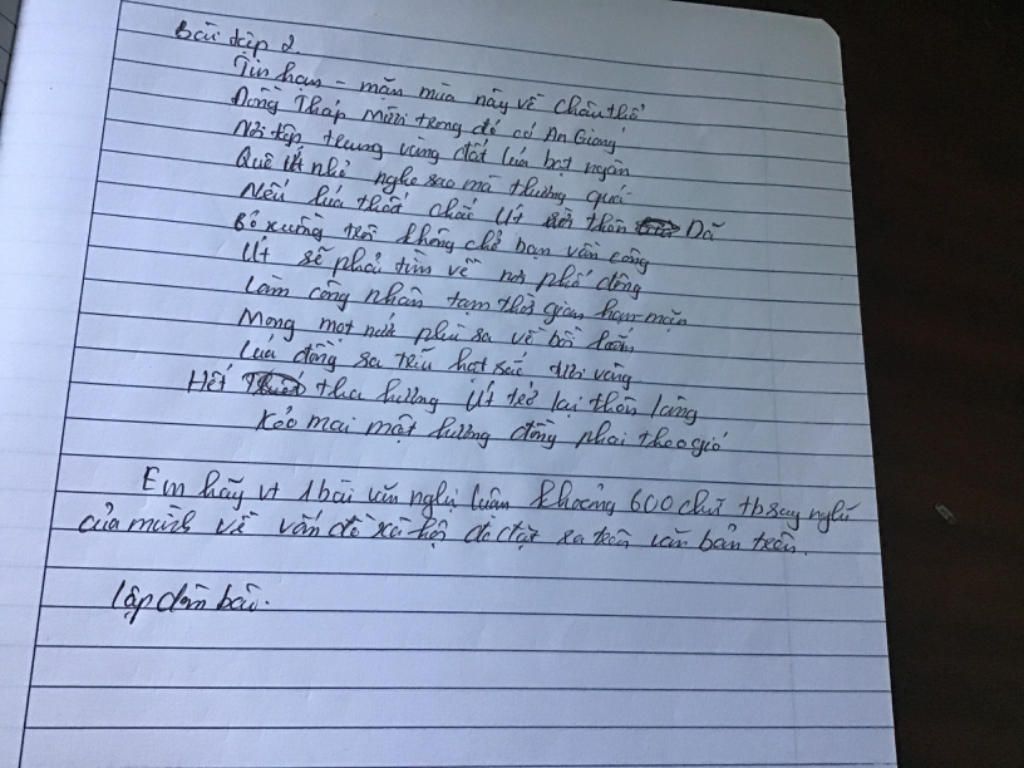 Bài tập 2.
Tin hạn - mặn mùa này về châu thổ
Đồng Tháp Mười trong đó có An Giang
Nơi tập trung vựng đất lúa bạt ngàn
Quê Út nhỏ nghe sao mà thương quá
Nếu lúa thất chắc Út rời thôn Dã
Bỏ xuồng trôi không chở bạn vần công
Út sẽ phải tìm về nơi phố đông
Làm công nhân tạm thời gian hạn-mặn
Mong một mùa phù sa về bồi lắng
Lúa đồng sa trĩu hạt sắc tươi vàng
Hết tha hương Út trở lại thôn làng
Kẻo mai một hương đồng phai theo gió
Em hãy vt 1 bài văn nghị luận khoảng 600 chữ tb suy nghĩ
của mình về vấn đề xã hội đc đặt ra trên văn bản trên.
lập dàn bài.